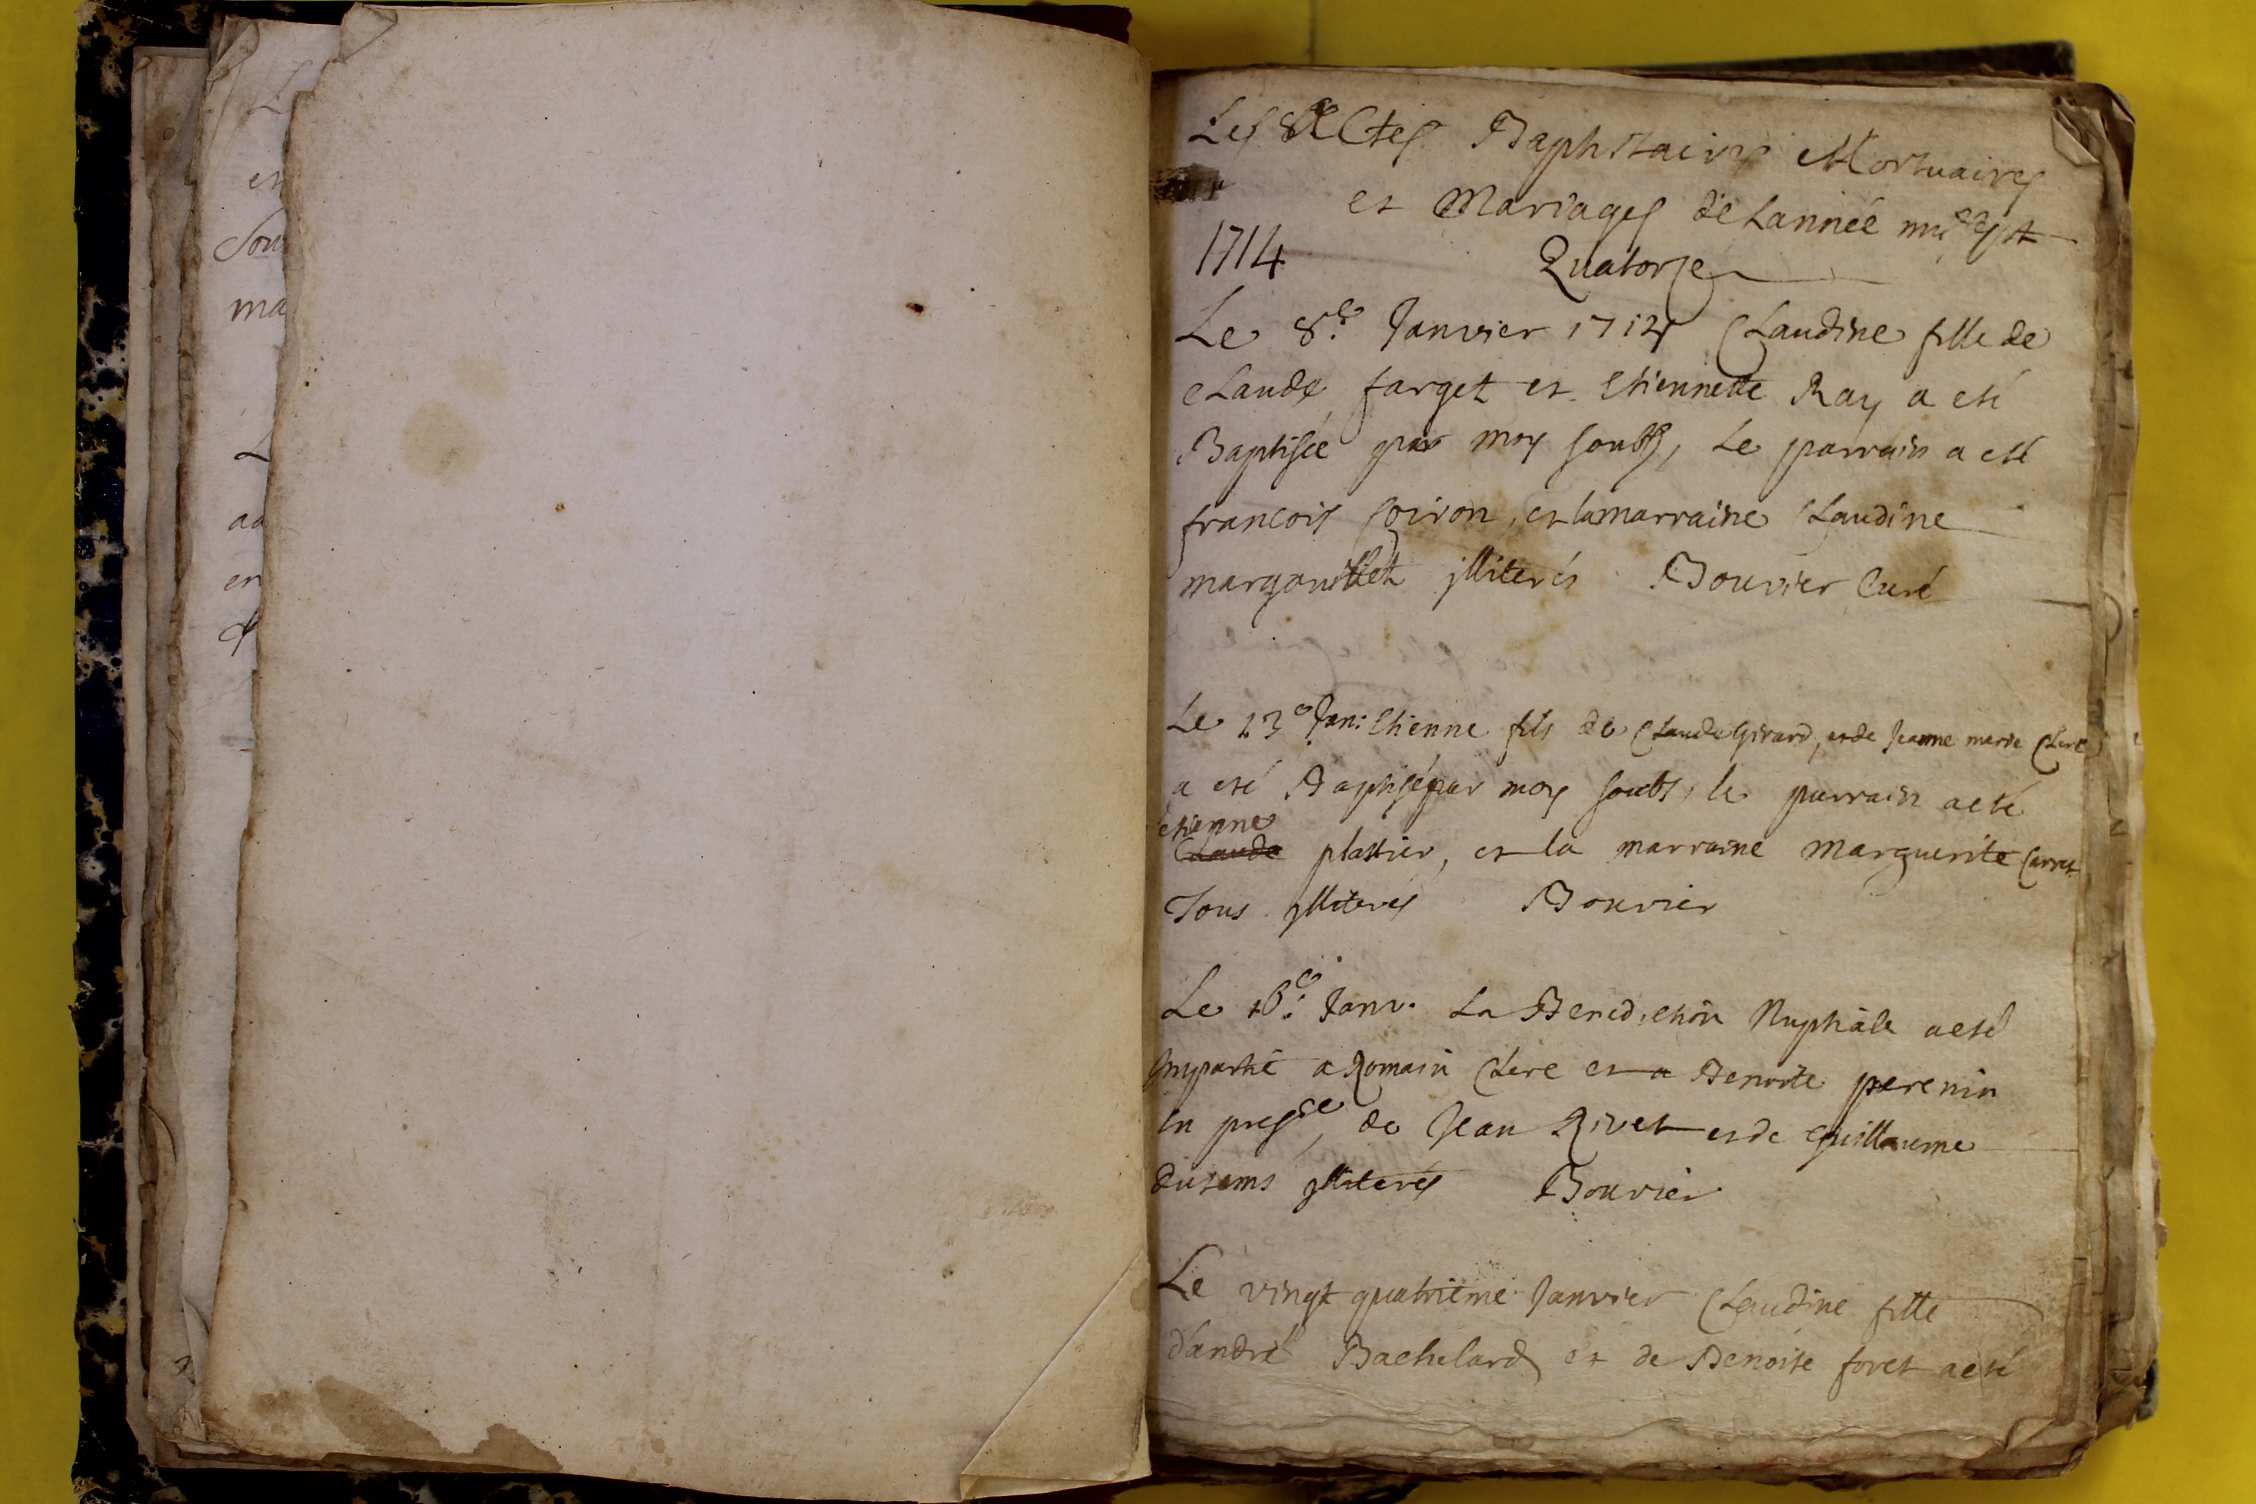 L
en
Sou
ma
L
au
en
Les Actes Baptistaires Mortuaires
et Mariages de Lannée mil sept
1714 Quatorze
Le 8e. Janvier 1714 Claudine fille de
Claude farget et Etiennette Ray a eté
Baptisée par moy soubs, Le parrain a eté
francois Coiron, et la marraine Claudine
margouillet illiterés Bouvier Curé
Le 13e Jan: Etienne fils de Claude Girard, et de Jeanne marie Clere
a eté Baptisé par moy soubs, le parrain a eté
etienne
Claude plattier, et la marraine marguerite Carret
Tous illiterés Bouvier
Le 16e. Janv. La Benediction Nuptiale a eté
Impartie a Romain Clere et a Benoite perenin
En presce, de Jean Rivet et de Guillaume
dutems illiterés Bouvier
Le vingt quatrieme Janvier Claudine fille
d'andré Bachelard et de Benoite foret a eté